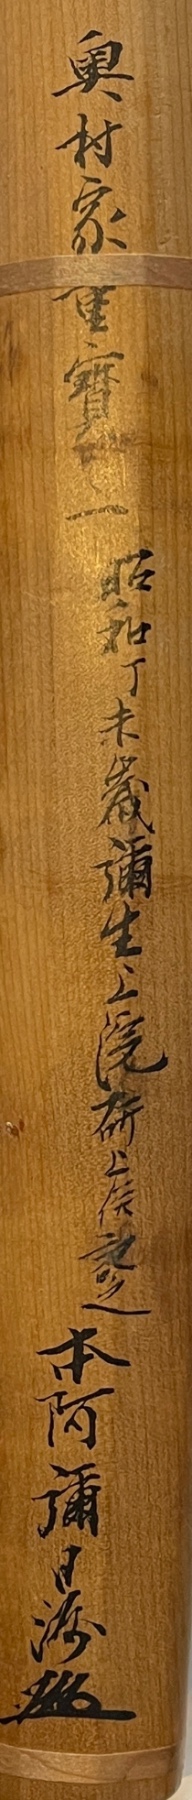 奥村家重寶之一
昭和丁未歳彌生上浣研上候記之
本阿彌日洲